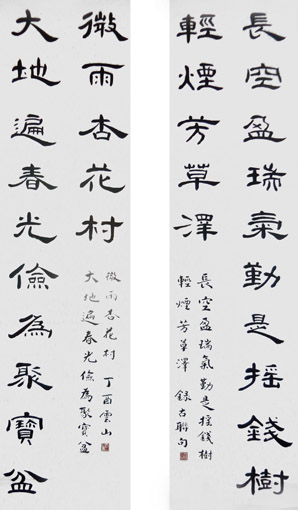 長空盈瑞氣勤是搖錢樹
輕煙芳草澤
長空盈瑞氣勤是搖錢樹
輕煙芳草澤 錄古聯句
微雨杏花村
微雨杏花村 丁酉雲山
大地遍春光儉為聚寶盆
大地遍春光儉為聚寶盆